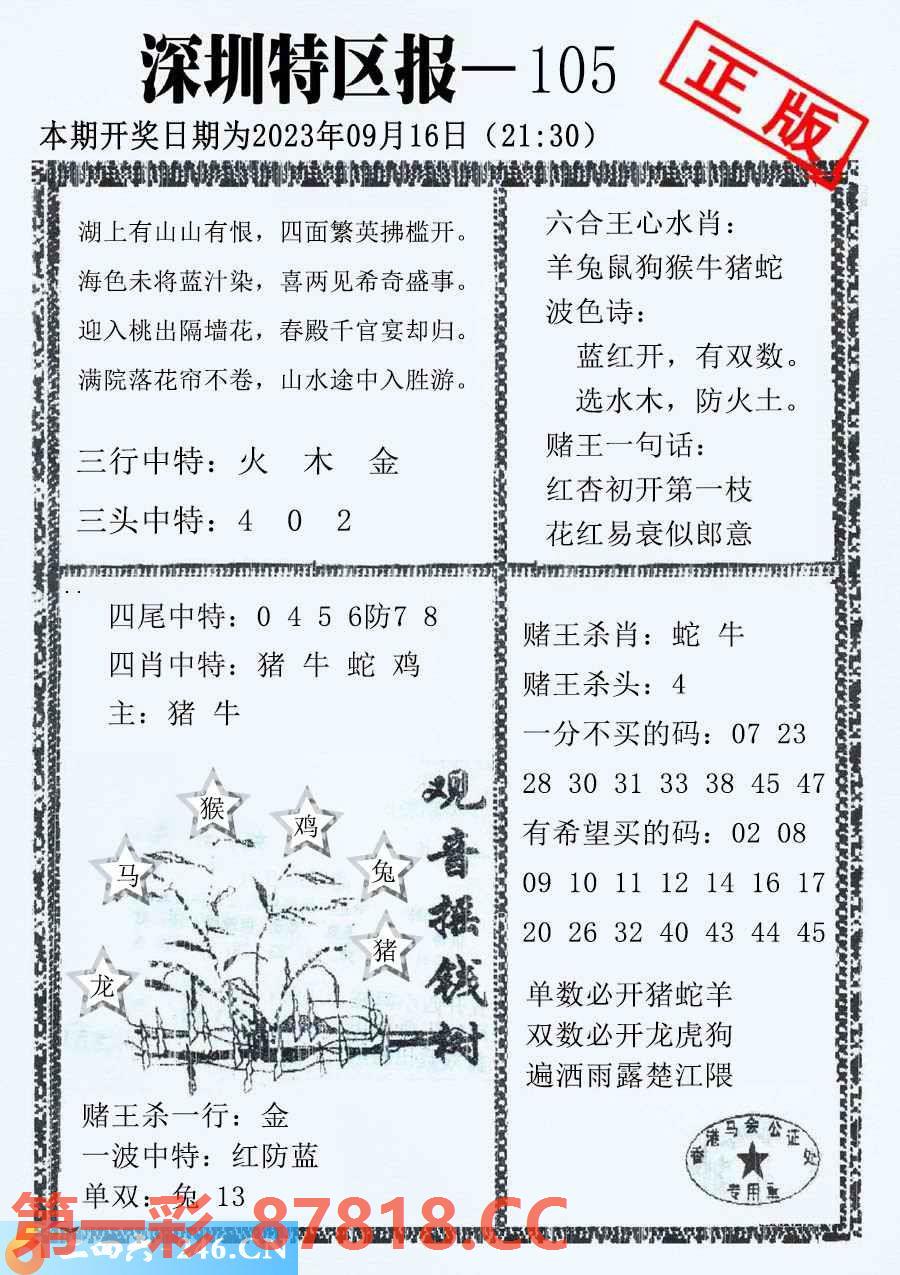 深圳特区报—105
正版
本期开奖日期为2023年09月16日（21:30）
湖上有山山有恨，四面繁英拂槛开。
海色未将蓝汁染，喜两见希奇盛事。
迎入桃出隔墙花，春殿千官宴却归。
满院落花帘不卷，山水途中入胜游。
三行中特：火 木 金
三头中特：4 0 2
六合王心水肖：
羊兔鼠狗猴牛猪蛇
波色诗：
蓝红开，有双数。
选水木，防火土。
赌王一句话：
红杏初开第一枝
花红易衰似郎意
四尾中特：0 4 5 6防7 8
四肖中特：猪 牛 蛇 鸡
主：猪 牛
猴
鸡
马
兔
猪
龙
观音摇钱树
赌王杀一行：金
一波中特：红防蓝
单双：兔 13
赌王杀肖：蛇 牛
赌王杀头：4
一分不买的码：07 23
28 30 31 33 38 45 47
有希望买的码：02 08
09 10 11 12 14 16 17
20 26 32 40 43 44 45
单数必开猪蛇羊
双数必开龙虎狗
遍洒雨露楚江隈
香港马会公证处
专用章
第一彩 87818.CC
246.CN